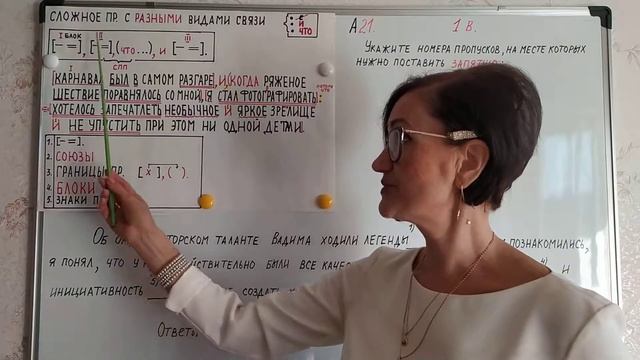 СЛОЖНОЕ ПР. С РАЗНЫМИ ВИДАМИ СВЯЗИ
: С
И
ЧТО
I БЛОК II III
[— =], [— =], (ЧТО...), И [— =].
СПП
I
[КАРНАВАЛ БЫЛ В САМОМ РАЗГАРЕ], И, (КОГДА РЯЖЕНОЕ
ШЕСТВИЕ ПОРАВНЯЛОСЬ СО МНОЙ), [Я СТАЛ ФОТОГРАФИРОВАТЬ]:
ХОТЕЛОСЬ ЗАПЕЧАТЛЕТЬ НЕОБЫЧНОЕ И ЯРКОЕ ЗРЕЛИЩЕ
И НЕ УПУСТИТЬ ПРИ ЭТОМ НИ ОДНОЙ ДЕТАЛИ.
1. [— =].
2. СОЮЗЫ
3. ГРАНИЦЫ ПР. [ x ], ( ).
4. БЛОКИ
5. ЗНАКИ
А21. 1 В.
УКАЖИТЕ НОМЕРА ПРОПУСКОВ, НА МЕСТЕ КОТОРЫХ
НУЖНО ПОСТАВИТЬ ЗАПЯТУЮ:
ОБ ТАЛАНТЕ ВАДИМА ХОДИЛИ ЛЕГЕНДЫ ПОЗНАКОМИЛИСЬ,
Я ПОНЯЛ, ЧТО БЫЛИ ВСЕ 4) И
ИНИЦИАТИВНОСТЬ 5) СОЗДАТЬ